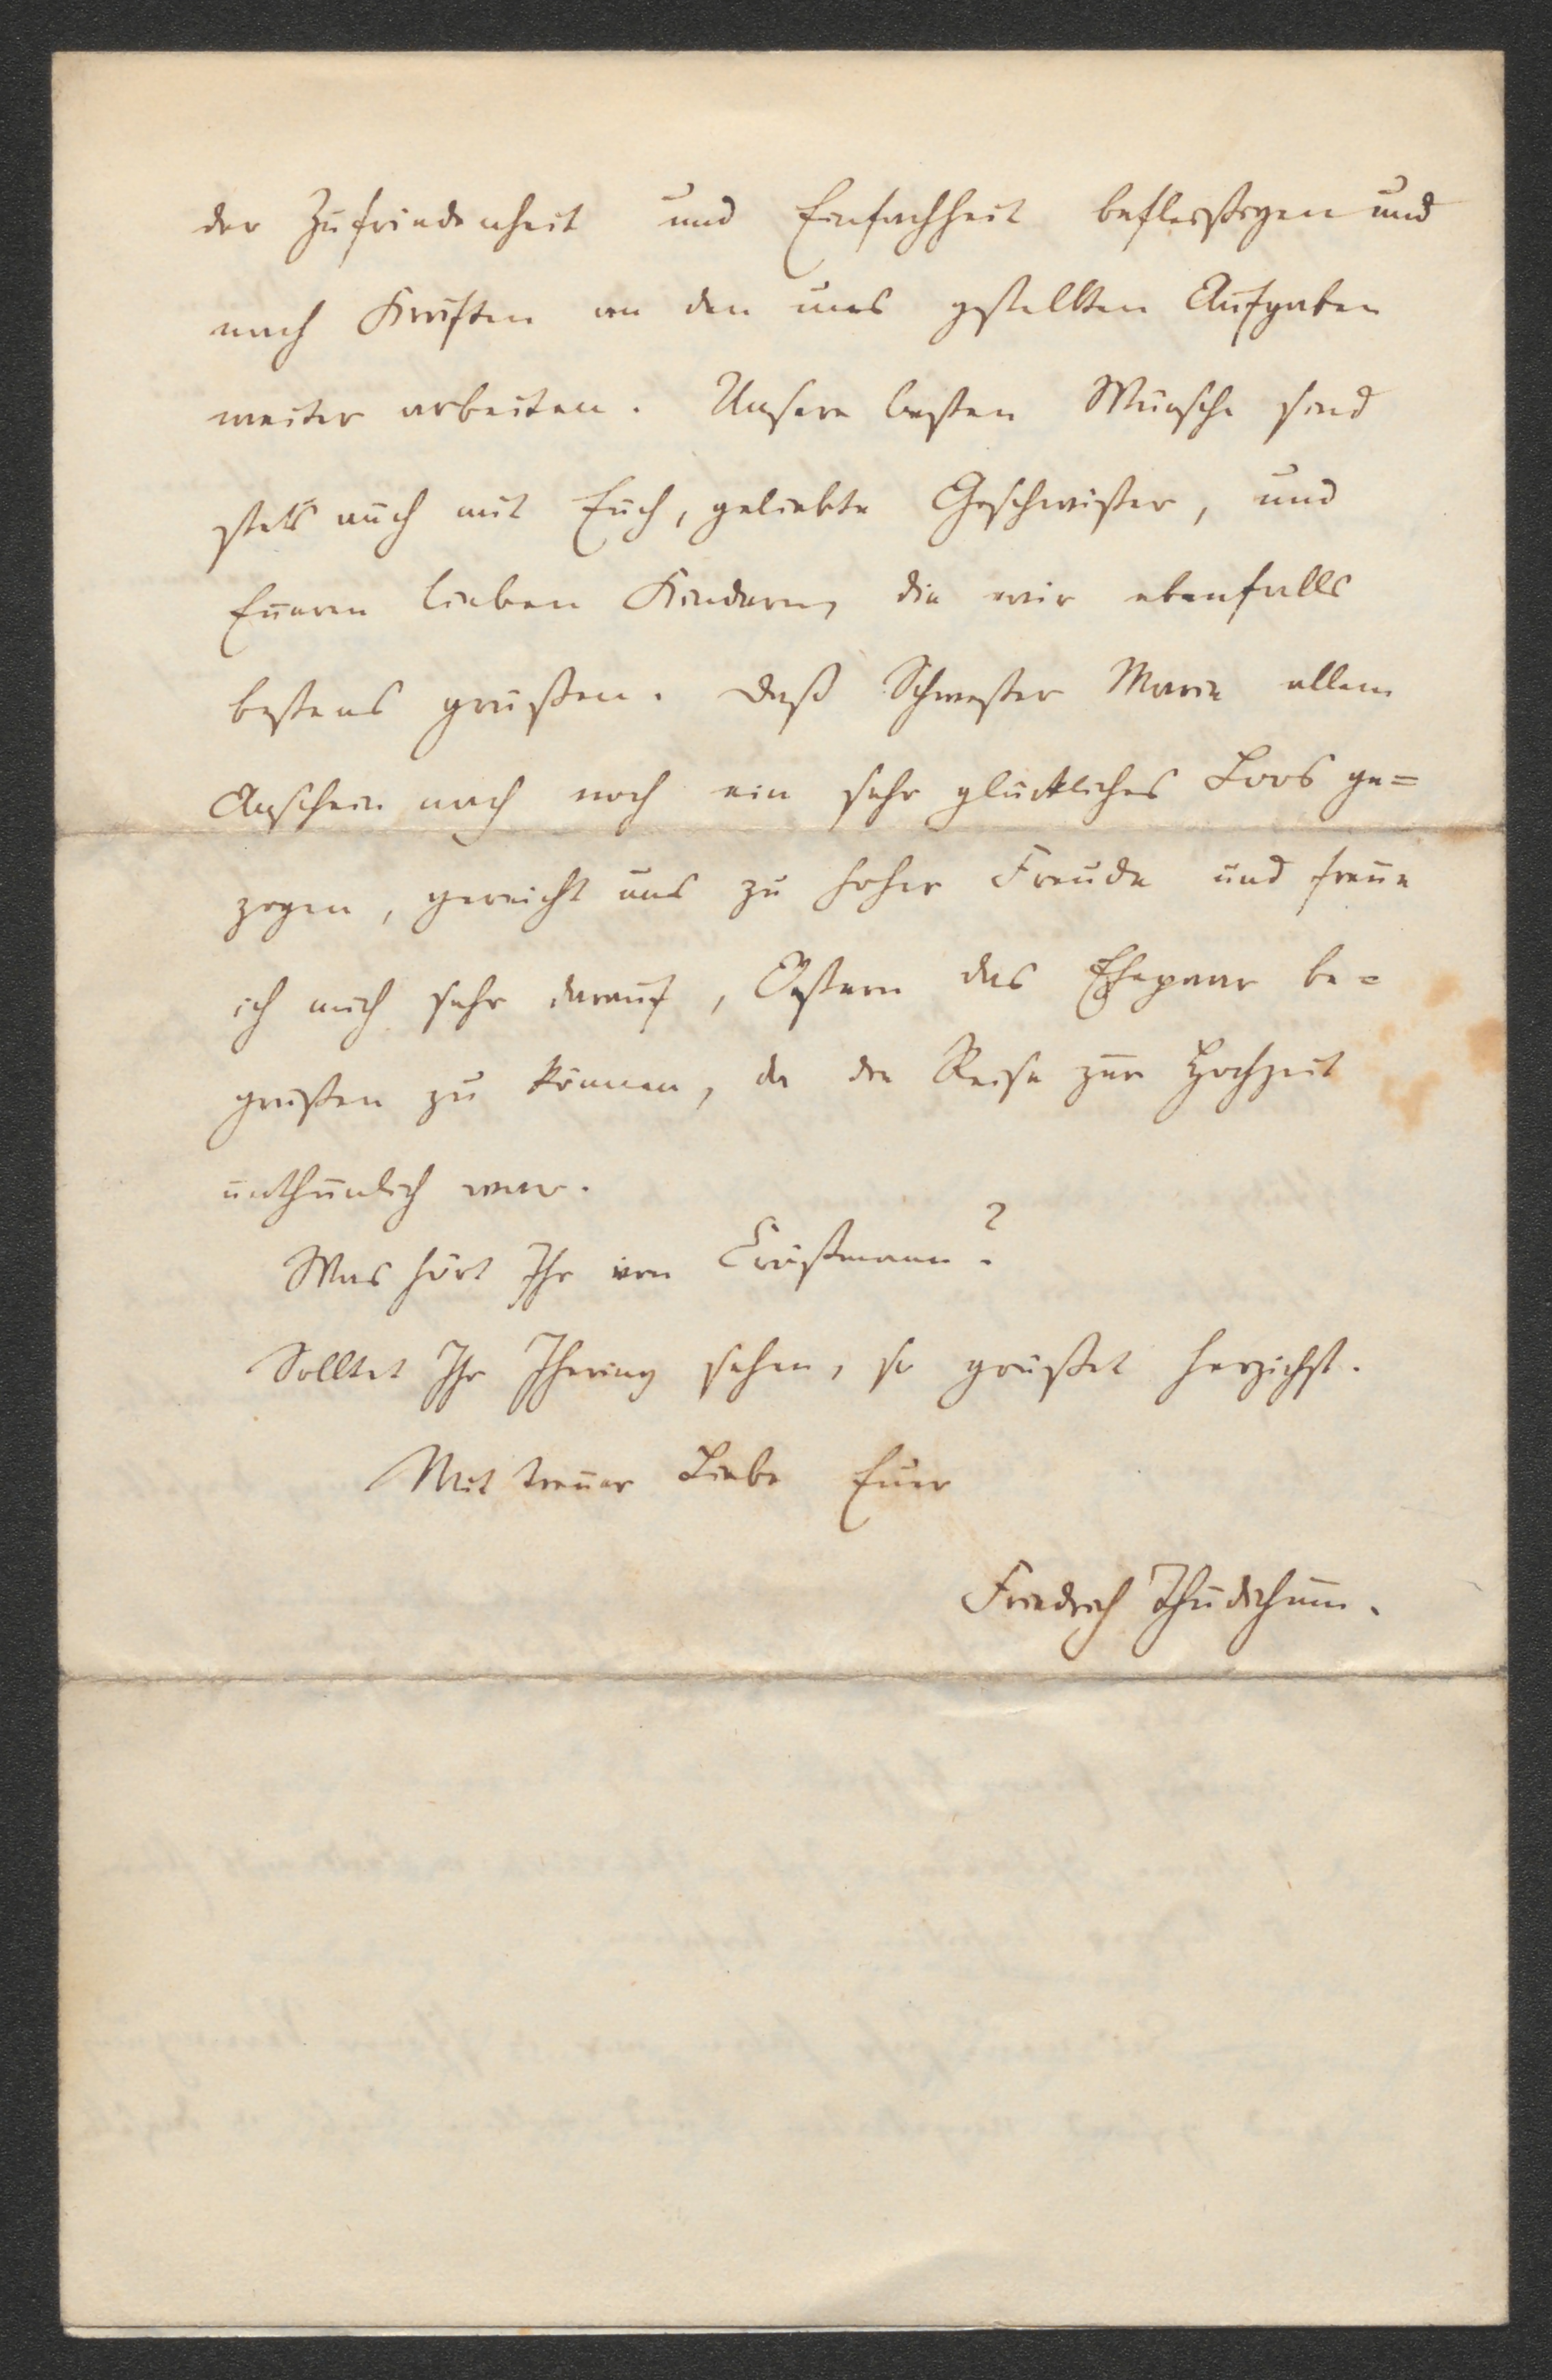 der Zufriedenheit und Einfachheit befleißigen und
nach Kräften an den uns gestellten Aufgaben
weiter arbeiten. Unsere besten Wünsche sind
stets auch mit Euch, geliebte Geschwister, und
Eueren lieben Kindern, die wir ebenfalls
bestens grüßen. Daß Schwester Marie allem
Anschein nach noch ein sehr glückliches Loos ge=
zogen, gereicht uns zu hoher Freude und freue
ich mich sehr darauf, Ostern das Ehepaar be=
grüßen zu können, da die Reise zur Hochzeit
unthunlich war.
Was hört Ihr von
Solltet Ihr Ihering sehen, so grüßet herzichst.
Mit treuer Liebe Euer
Friedrich Thudichum.